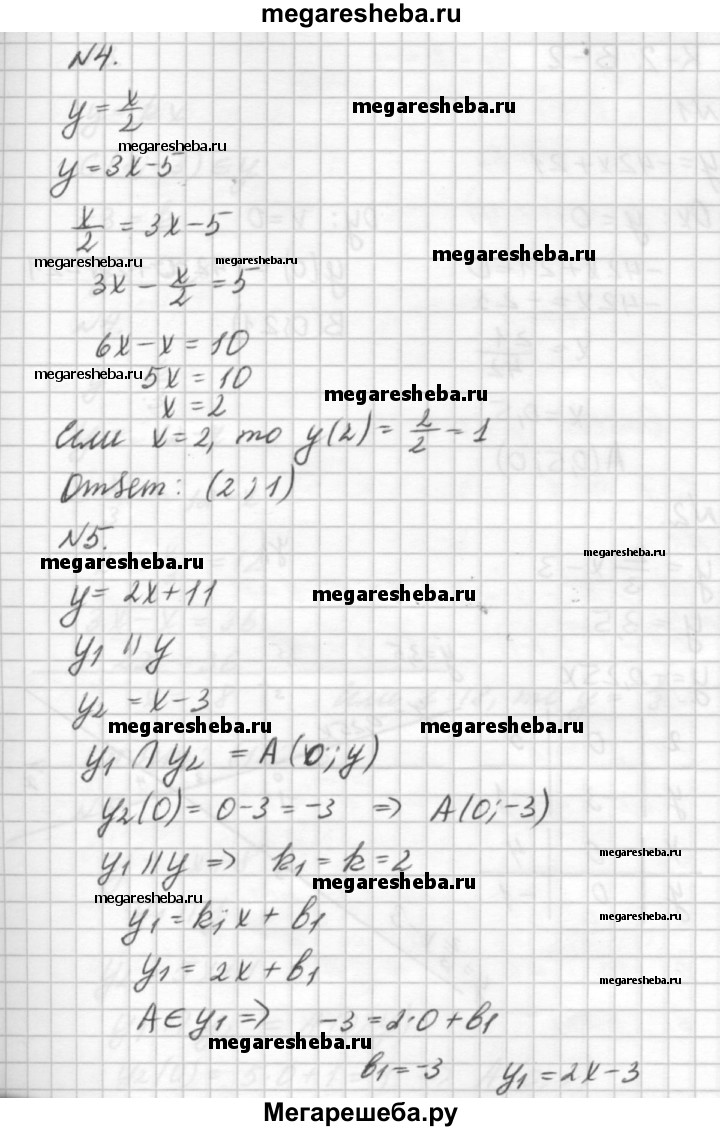 megaresheba.ru
N4.
y = x/2
megaresheba.ru
megaresheba.ru
y = 3x-5
x/2 = 3x-5
megaresheba.ru megaresheba.ru megaresheba.ru
3x - x/2 = 5
6x-x = 10
megaresheba.ru 5x = 10
megaresheba.ru
x = 2
Если x=2, то y(2) = 2/2 = 1
Ответ: (2; 1)
N5.
megaresheba.ru megaresheba.ru
y = 2x+11 megaresheba.ru
y₁ || y
y₂ = x-3
megaresheba.ru megaresheba.ru
y₁ ∩ y₂ = A(0; y)
y₂(0) = 0-3 = -3 => A(0;-3)
y₁ || y => k₁ = k = 2 megaresheba.ru
megaresheba.ru
megaresheba.ru
y₁ = k₁x + b₁ megaresheba.ru
y₁ = 2x + b₁ megaresheba.ru
A∈y₁ => -3 = 2·0 + b₁
megaresheba.ru
b₁ = -3 y₁ = 2x-3
Мегарешеба.ру